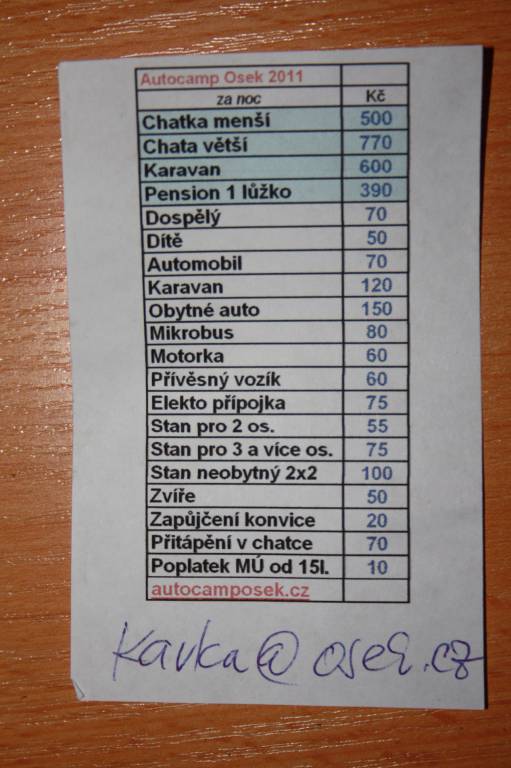 Autocamp Osek 2011
za noc Kč
Chatka menší 500
Chata větší 770
Karavan 600
Pension 1 lůžko 390
Dospělý 70
Dítě 50
Automobil 70
Karavan 120
Obytné auto 150
Mikrobus 80
Motorka 60
Přívěsný vozík 60
Elekto přípojka 75
Stan pro 2 os. 55
Stan pro 3 a více os. 75
Stan neobytný 2x2 100
Zvíře 50
Zapůjčení konvice 20
Přitápění v chatce 70
Poplatek MÚ od 15l. 10
autocamposek.cz
Kavka@osek.cz